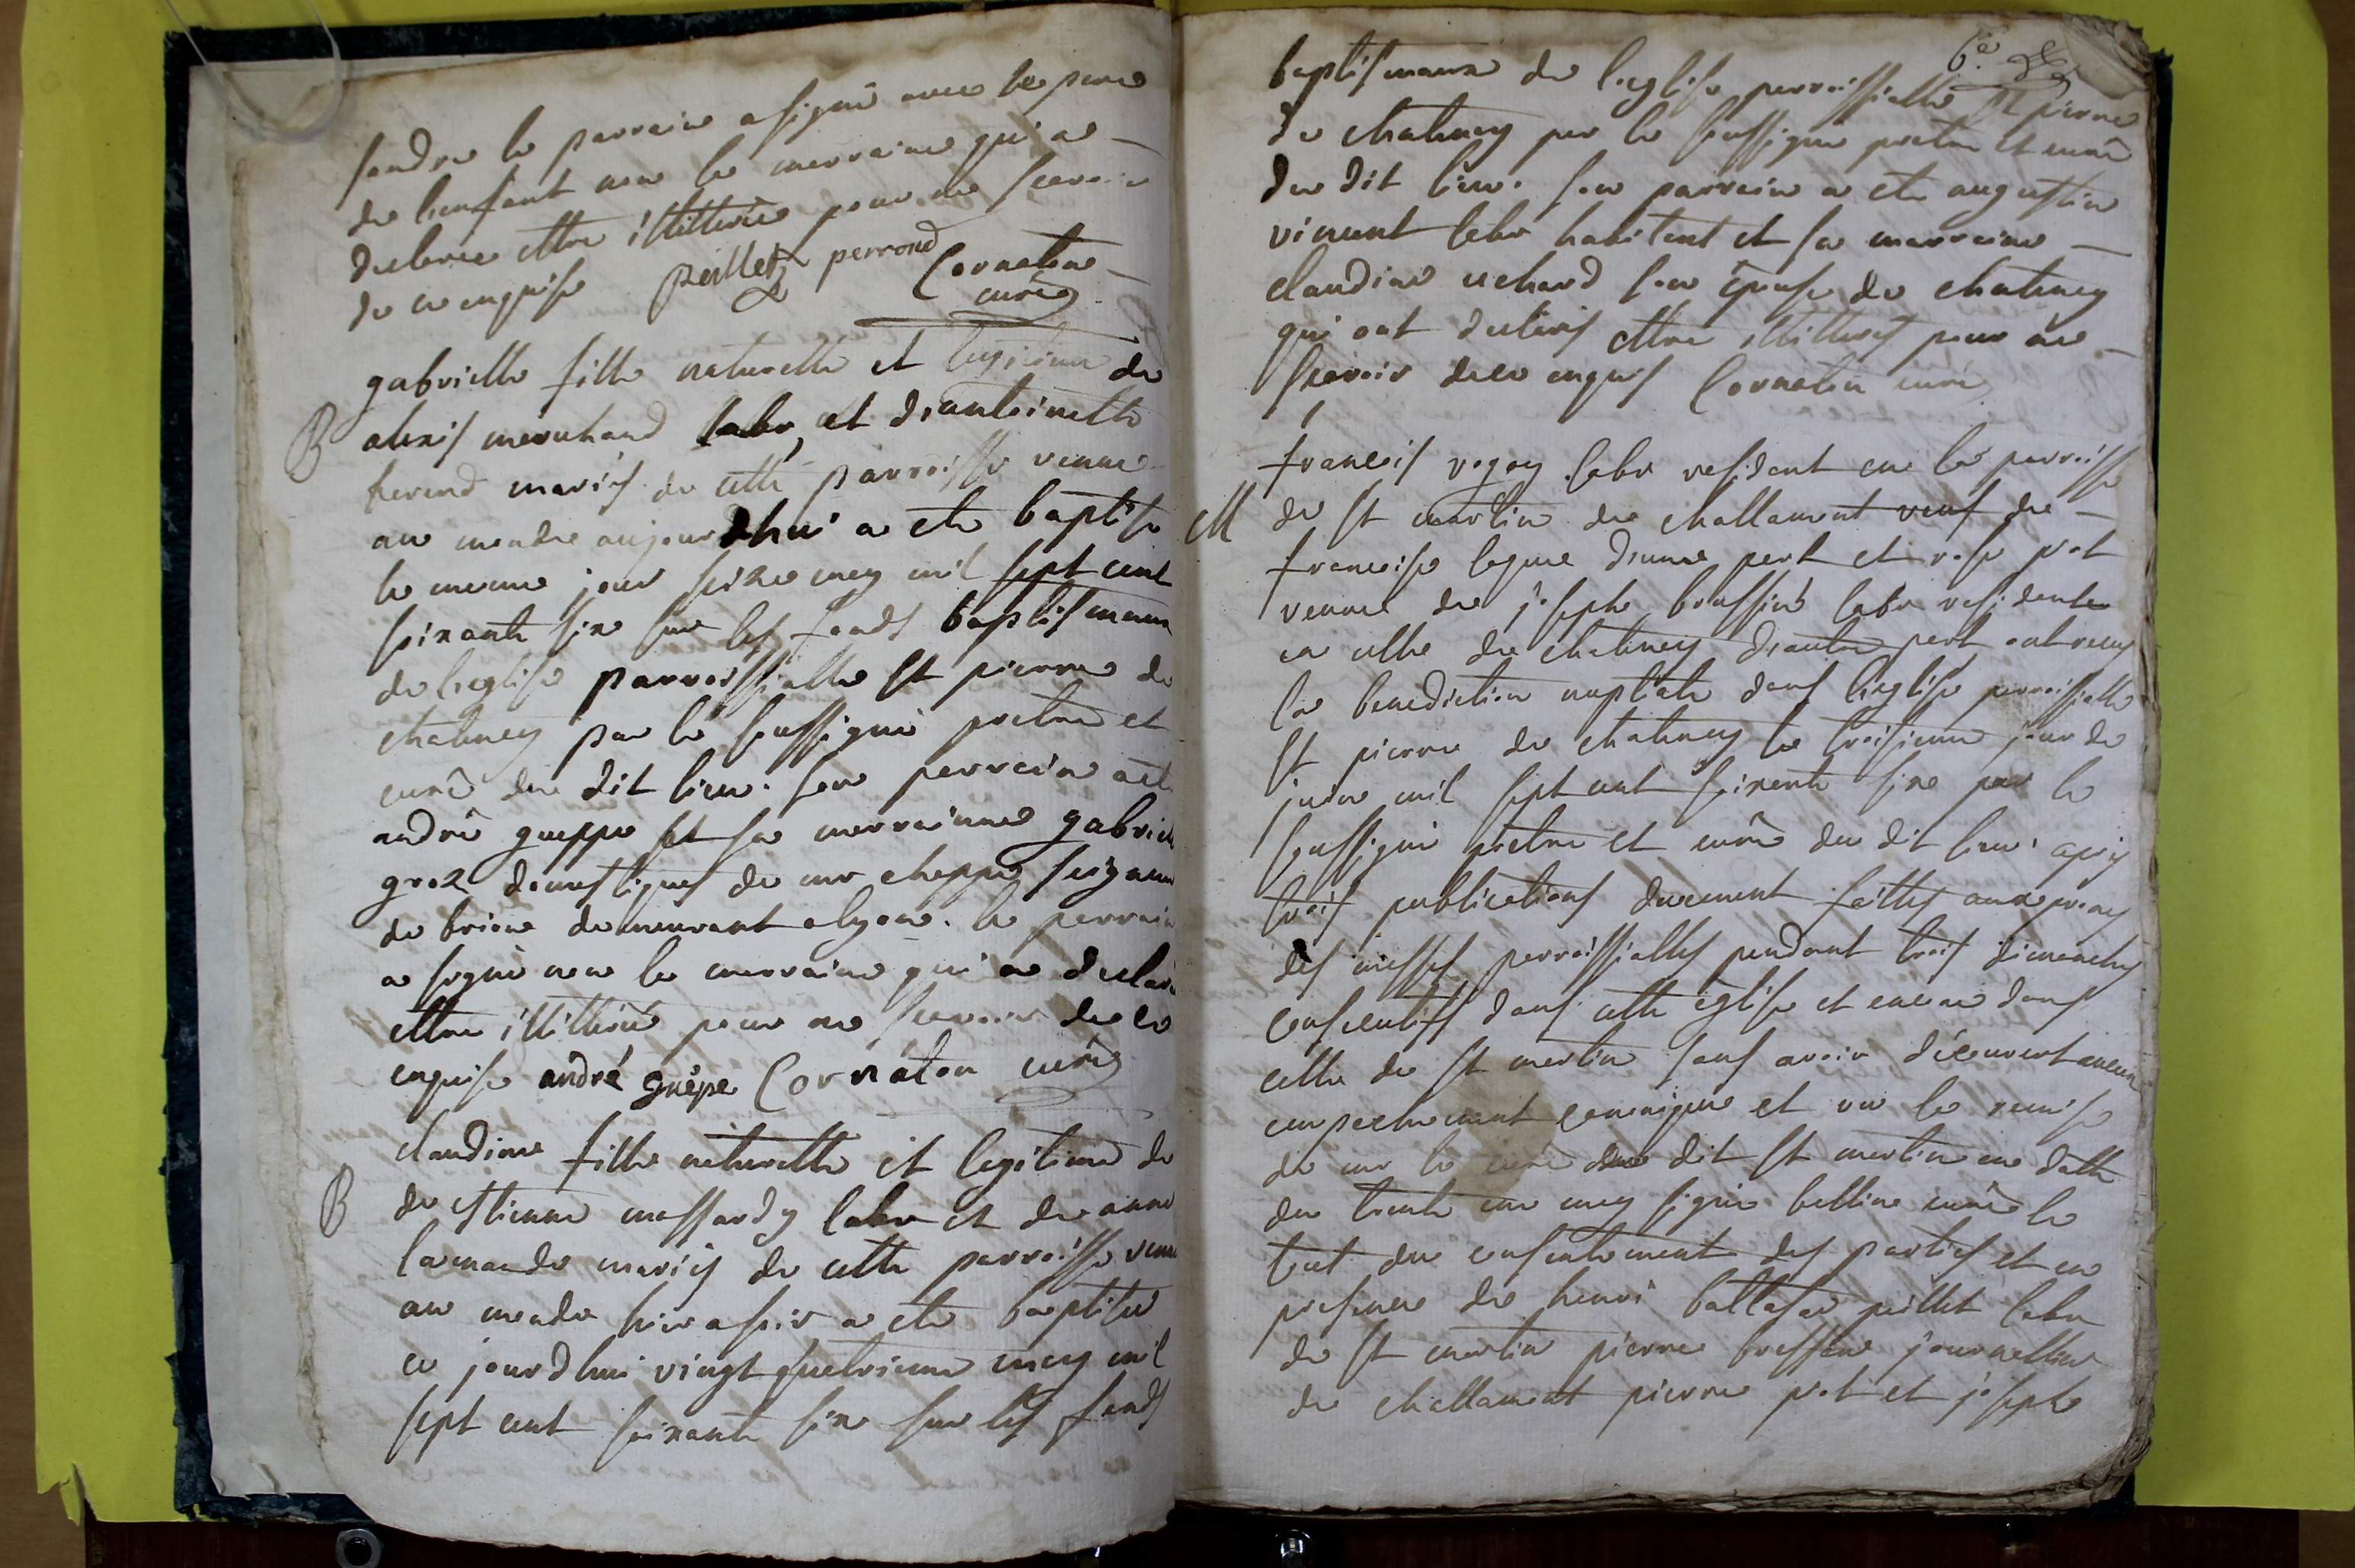 sandre le parrain a signé avec le pere
de lenfant non la marraine qui a
declaree ettre illitteree pour ne scavoir
de ce enquise peillet perroud Cornaton
curé
gabrielle fille naturelle et legitime de
B alexis merchand labr et dantoinette
ferend mariés de cette parroisse venue
au monde aujourdhui a ete baptise
le meme jour seize mey mil sept cent
soixante six sur les fonds baptismaux
de leglise parroissialle St pierre de
chateney par le soussigné pretre et
curé du dit lieu. son perrein a ete
andré gueppe et sa merrainne gabriel
groz domestiques de mr cheppe
de brion demeurant a lyon. le perrein
a signé non la merraine qui a declaré
ettre illitterée pour ne scavoir de ce
enquise andré guêpe Cornaton curé
claudine fille naturelle et legitime de
B de etienne massardy labr et de anne
lamande mariés de cette parroisse venue
au monde hier a soir a ete baptisée
ce jourdhui vingt quatrieme mey mil
sept cent soixante six sur les fonds
6e.
baptismaux de leglise perroissialle St pierre
de chateney par le soussigné pretre et curé
du dit lieu. son parrein a ete augustin
vincent labr habitant et sa marreine
claudine uchard son épouse de chateney
qui ont declarés ettre illitterés pour ne
scavoir de ce enquis Cornaton curé
francois rogey labr residant en la perroisse
M de St martin de challamont veuf de
francoise dune part et rose piot
veuve de joseph broussin labr residente
en celle de chateney dautre part ont recu
la benediction nuptiale dans leglise perroissialle
St pierre de chateney le troisieme jour de
juin mil sept cent soixente six par le
soussigné pretre et curé du dit lieu. après
trois publications duement faittes aux prones
des messes perroissialles pendant trois dimenches
consecutifs dans cette église et encore dans
celle de St martin sans avoir découvert aucun
empechement canonique et vu la remise
de mr le curé du dit St martin en datte
du trente un mey signé bellin curé le
tout du consentement des parties et en
presence de henri baltasar peillet labr
de St martin pierre bressan journallier
de challamont pierre piot et joseph